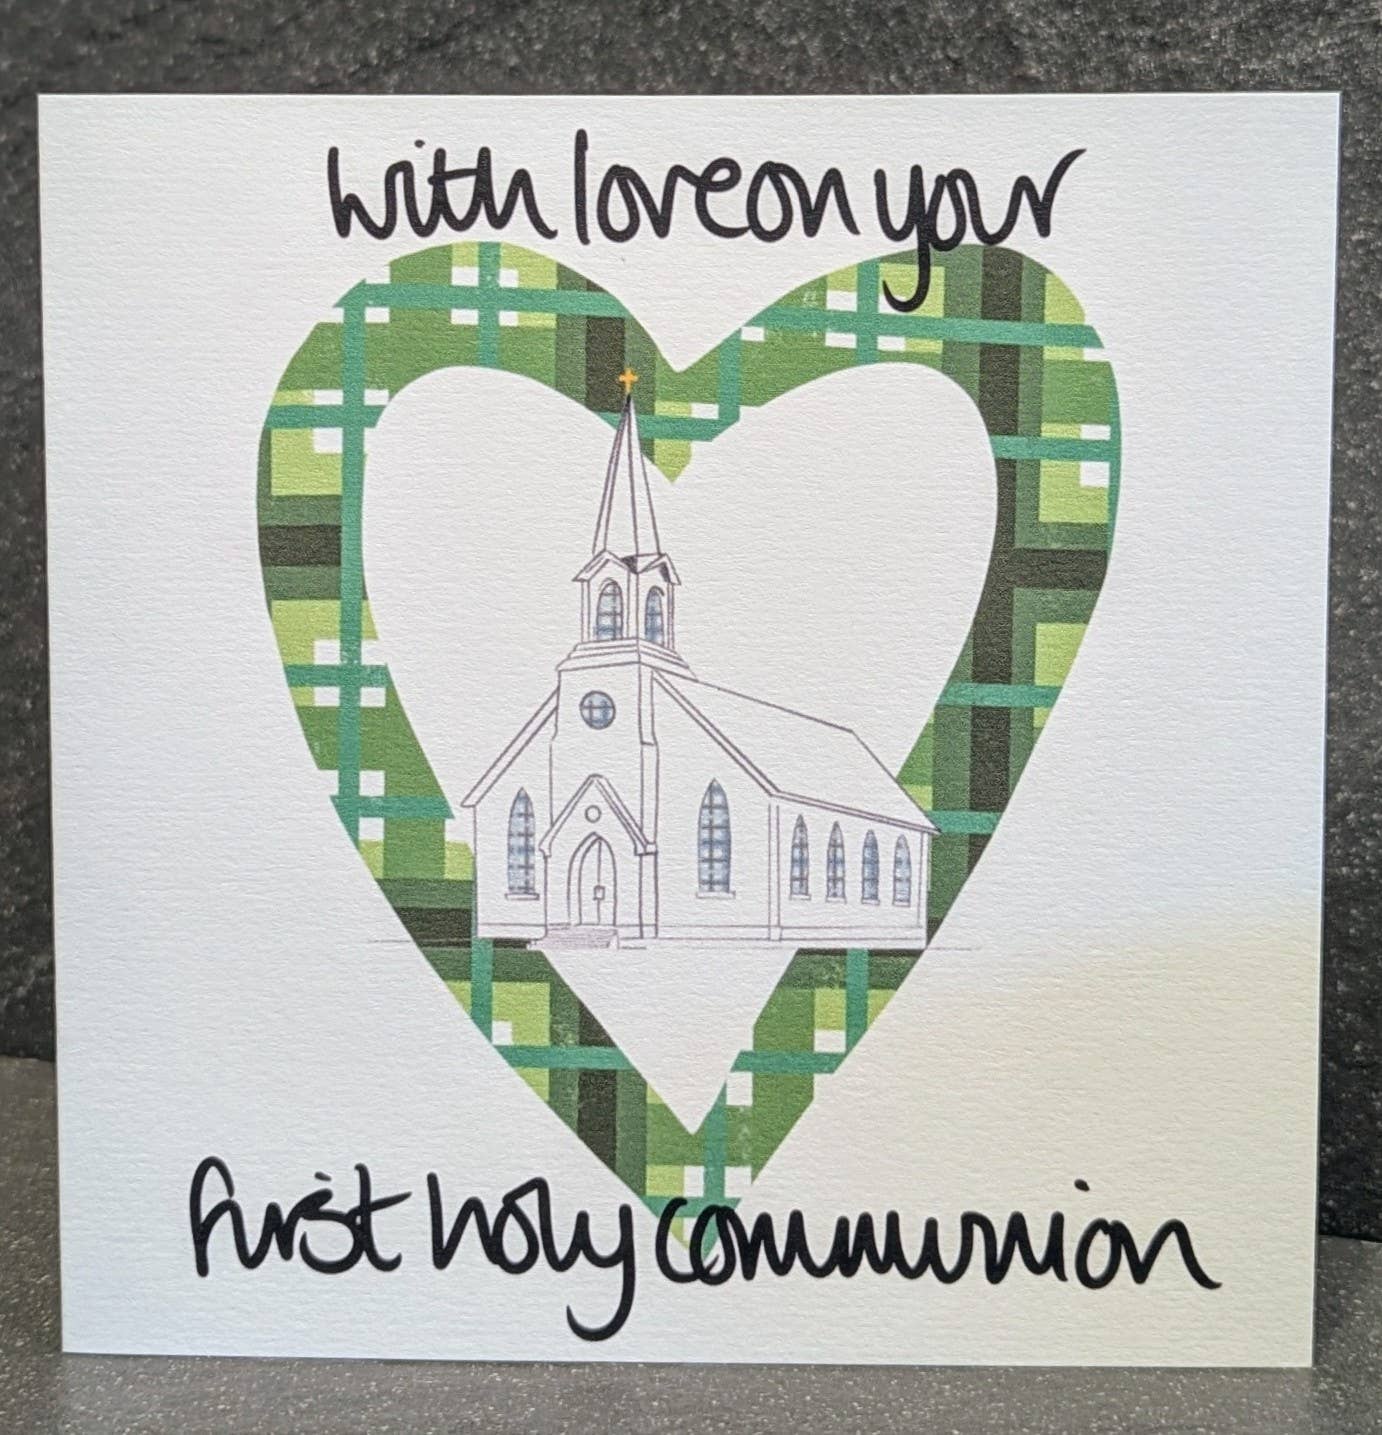 with love on your
first holy communion